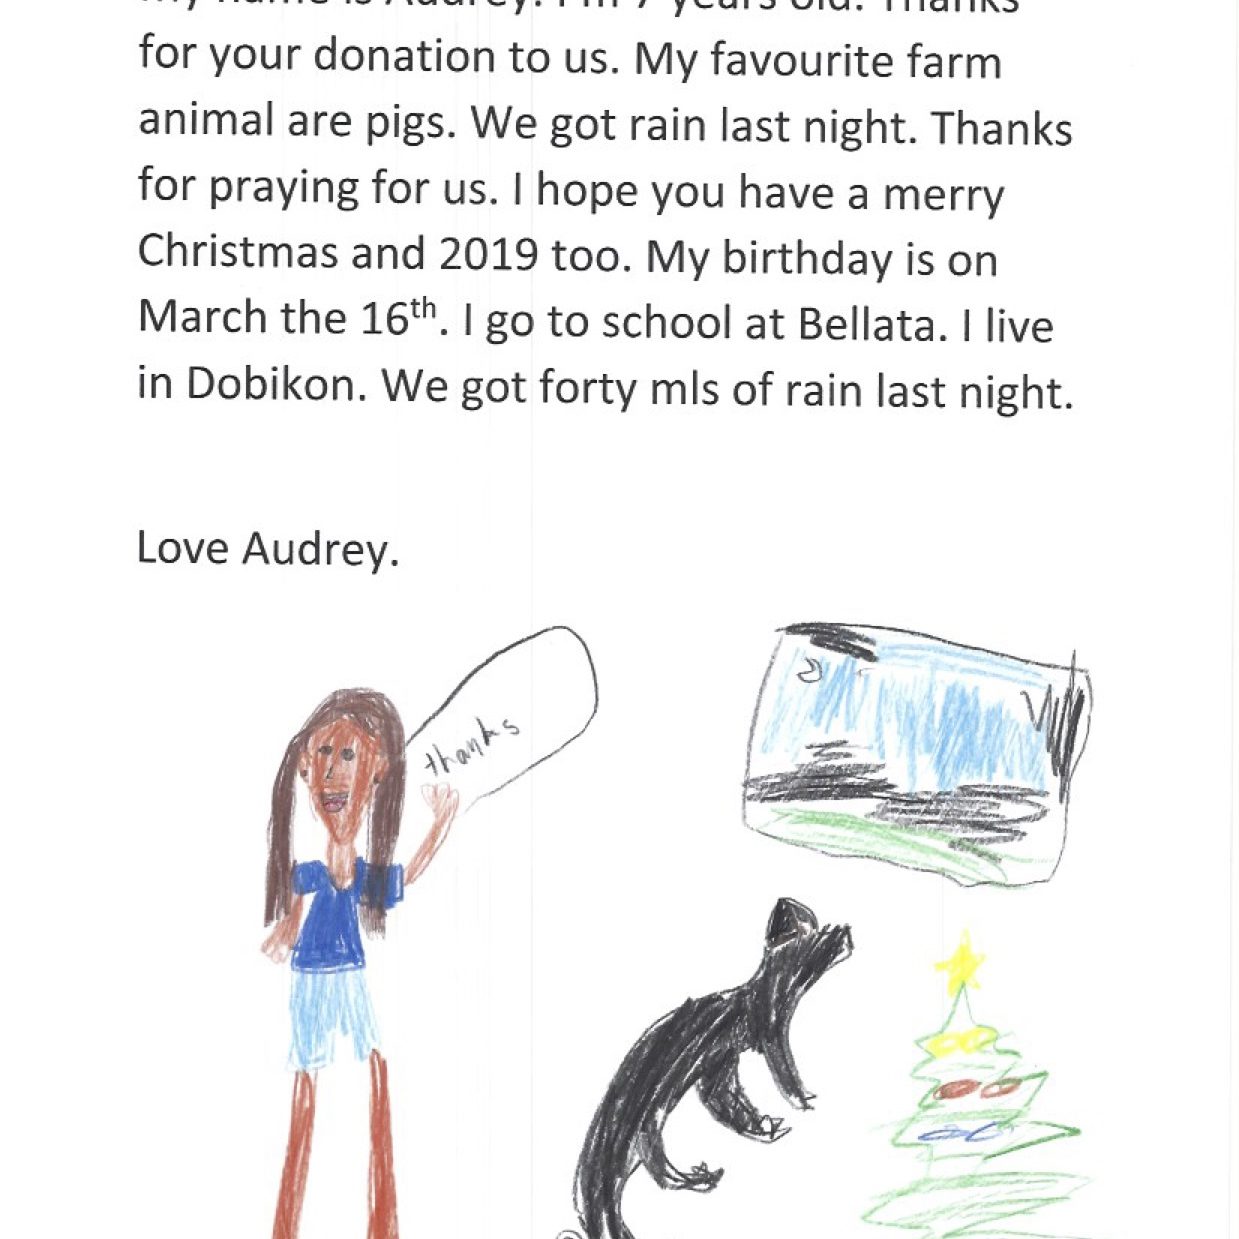 My name is Audrey. I'm 7 years old. Thanks
for your donation to us. My favourite farm
animal are pigs. We got rain last night. Thanks
for praying for us. I hope you have a merry
Christmas and 2019 too. My birthday is on
March the 16th. I go to school at Bellata. I live
in Dobikon. We got forty mls of rain last night.
Love Audrey.
thanks